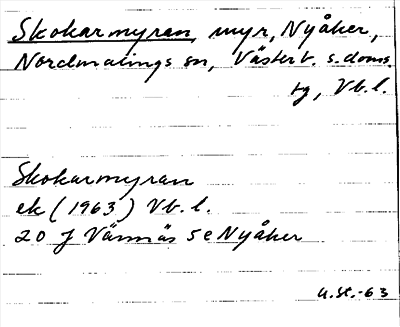 Skokarmyran, myr, Nyåker,
Nordmalings sn, Västerb. s. doms.
tg, Vb. l.
Skokarmyran
ek (1963) Vb. l.
20 J Vännäs se Nyåker
U. St. -63